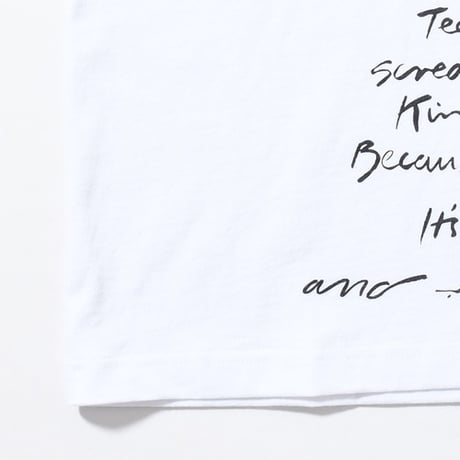 Tee
screa
Kin
Becau
It's
and